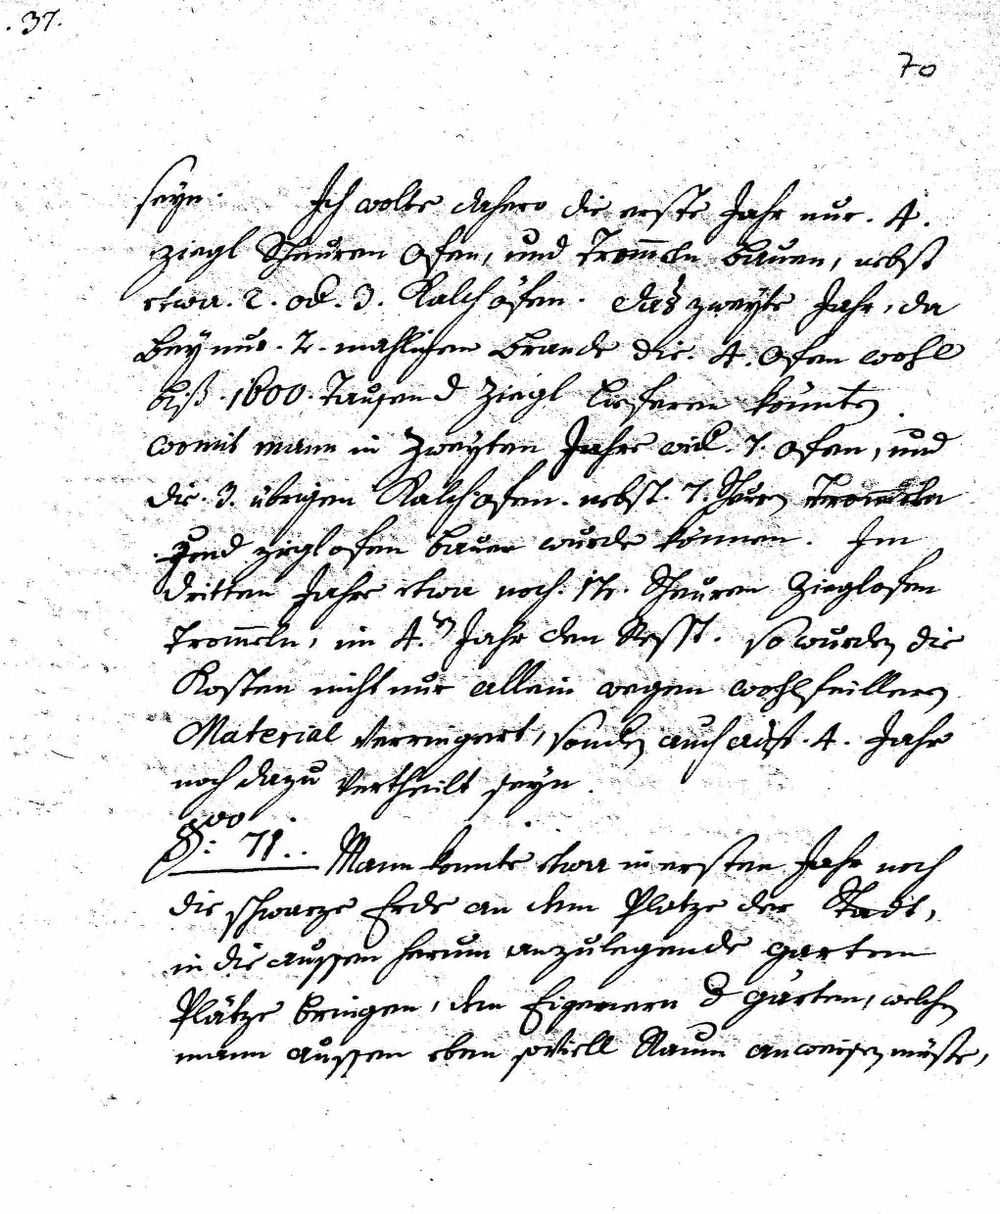 .37.
70
seyn. Ich wolte dahero die erste Jahr nur. 4.
ziegl Scheuren Ofen, und Trom̄eln bauen, nebst
etwa. 2. od. 3. Kalchöfen. das zweyte Jahr, da
bey nur. 2. mahligem brande die. 4. Ofen wohl
biß. 1600. Tausend Ziegl lieferen könnte.
womit mann in zweyten Jahre wid. 7. Ofen, und
die. 3. übrigen Kalchofen. nebst. 7. Trom̄eln
und zieglofen bauen wurde können. Im
dritten Jahre etwa noch. Scheuren Zieglofen
Trom̄eln, im 4.n Jahr den Rest. so wurden die
Kosten nicht nur allein wegen wohlfeilleren
Material verringert, sondern auch auf. 4. Jahr
noch dazu vertheilt seyn.
71.. Mann konnte etwa in ersten Jahr noch
die schwarze Erde an dem Platze der Stadt,
in die aussen herum anzulegende garten
Plätze bringen, den Eigenern d gärten, welchen
mann aussen eben soviell Raum anweisen müste,